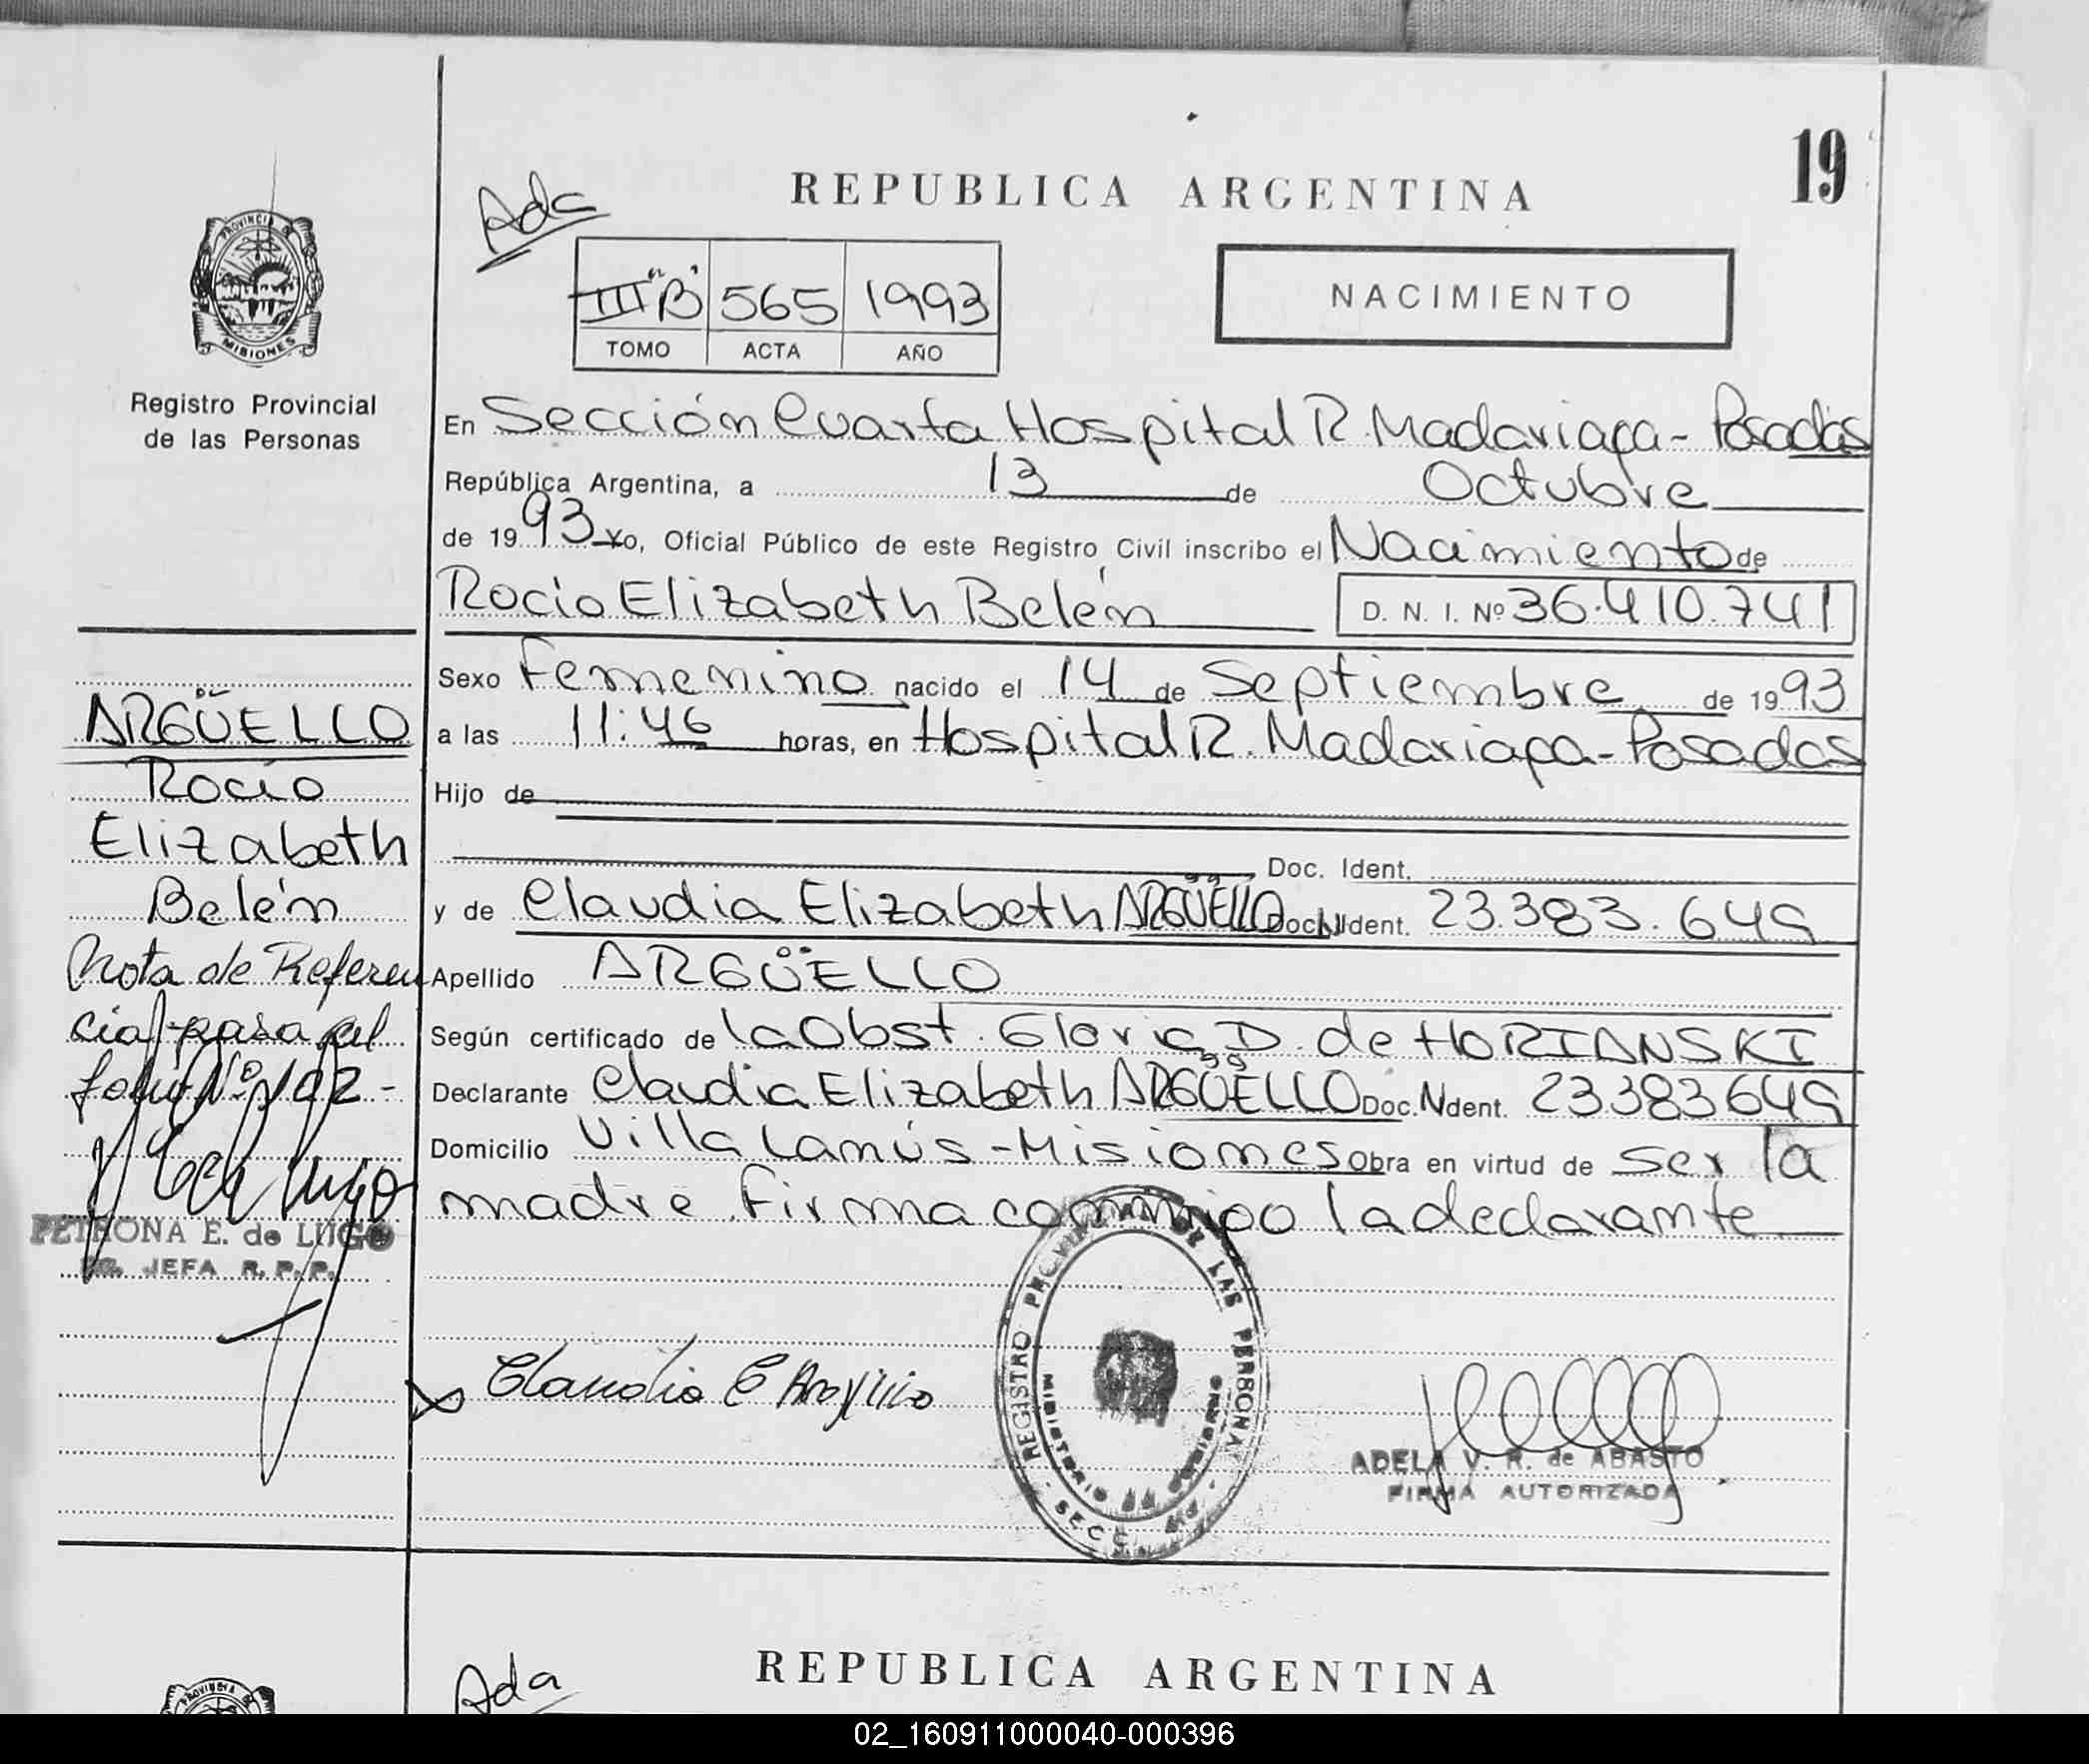 19
REPUBLICA ARGENTINA
Ada
III "B" 565 1993
TOMO ACTA AÑO
NACIMIENTO
PROVINCIA DE
MISIONES
Registro Provincial
de las Personas
En Sección Cuarta Hospital R. Madariaga - Posadas
República Argentina, a 13 de Octubre
de 1993 Yo, Oficial Público de este Registro Civil inscribo el Nacimiento de
Rocío Elizabeth Belén D. N. I. Nº 36.410.741
Sexo Femenino nacido el 14 de Septiembre de 1993
a las 11:46 horas, en Hospital R. Madariaga - Posadas
Hijo de
Doc. Ident.
y de Claudia Elizabeth ARGÜELLO Doc. N Ident. 23.383.649
Apellido ARGÜELLO
Según certificado de la Obst. Gloria D. de HORIANSKI
Declarante Claudia Elizabeth ARGÜELLO Doc. Ndent. 23383649
Domicilio Villa Lanús - Misiones Obra en virtud de ser la
madre. Firma conmigo la declarante
ARGÜELLO
Rocío
Elizabeth
Belén
Nota de Referen
cia pasa al
folio Nº 102 -
PETRONA E. de LUGO
JEFA R. P. P.
Claudia E Arguello
REGISTRO PROVINCIAL DE LAS PERSONAS
MINISTERIO DE GOBIERNO
SECC
ADELA V. R. de ABASTO
FIRMA AUTORIZADA
REPUBLICA ARGENTINA
Ada
PROVINCIA DE
02_160911000040-000396